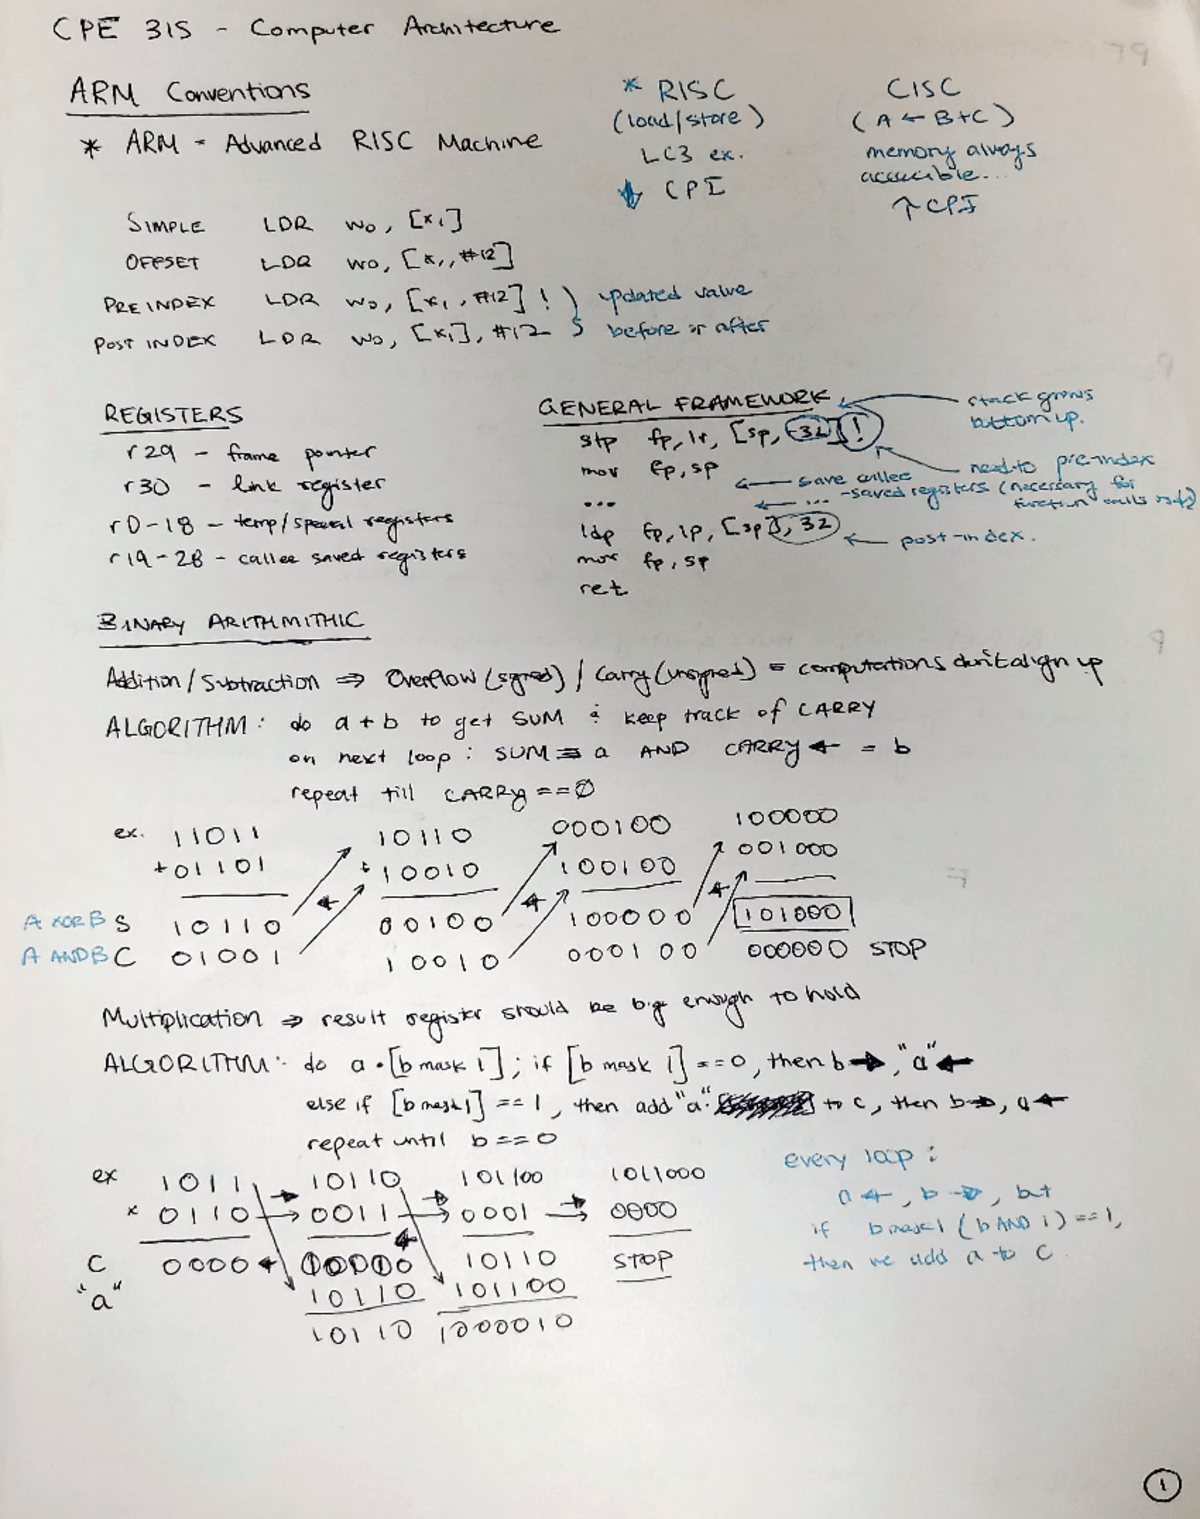 CPE 315 - Computer Architecture
ARM Conventions
* ARM - Advanced RISC Machine
* RISC
(load/store)
LC3 ex.
↓ CPI
CISC
(A ← B+C)
memory always
accessible...
↑ CPI
SIMPLE LDR w0, [x1]
OFFSET LDR w0, [x1, #12]
PRE INDEX LDR w0, [x1, #12]!
POST INDEX LDR w0, [x1], #12
updated value
before or after
REGISTERS
r29 - frame pointer
r30 - link register
r0-18 - temp/special registers
r19-28 - callee saved registers
GENERAL FRAMEWORK
stp fp, lr, [sp, 32]!
mov fp, sp
...
ldp fp, lp, [sp], 32
mov fp, sp
ret
stack grows
bottom up.
need to pre-index
← save callee
← ... -saved registers (necessary for
function calls
← post-index.
BINARY ARITHMITHIC
Addition/Subtraction ⇒ Overflow (signed) / Carry (unsigned) = computations don't align up
ALGORITHM: do a + b to get SUM & keep track of CARRY
on next loop: SUM = a AND CARRY ← = b
repeat till CARRY == 0
ex. 11011 10110 000100 100000
+01101 +10010 100100 001000
A XOR B S 10110 00100 100000 101000
A AND B C 01001 10010 000100 000000 STOP
Multiplication ⇒ result register should be big enough to hold
ALGORITHM: do a • [b mask 1]; if [b mask 1] == 0, then b →, "a" ←
else if [b mask 1] == 1, then add "a" to c, then b →, a ←
repeat until b == 0
ex 1011 10110 101100 1011000
x 0110 0011 0001 0000
C 0000 00000 10110 STOP
"a" 10110 101100
10110 1000010
every loop:
a ←, b →, but
if b mask 1 (b AND 1) == 1,
then we add a to C.
1